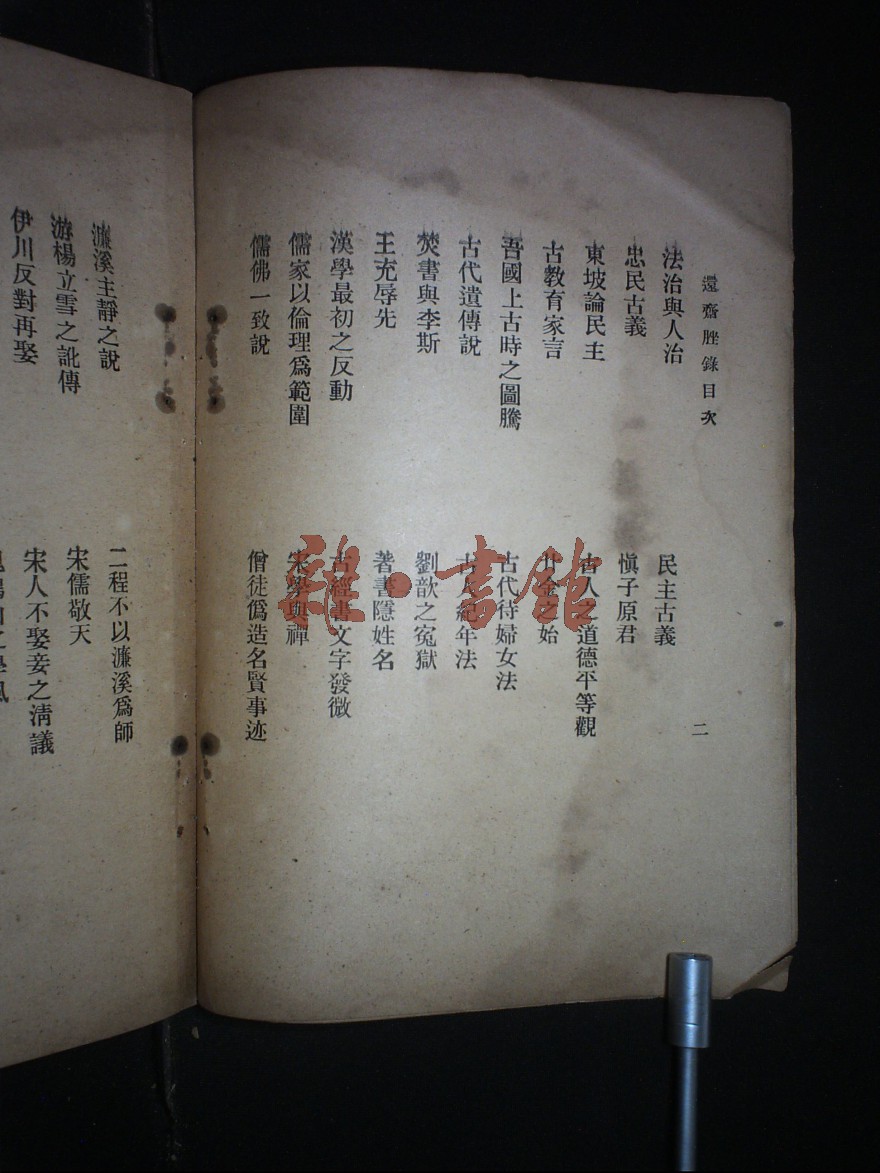 還齋脞錄目次
二
法治與人治
民主古義
忠民古義
愼子原君
東坡論民主
古人之道德平等觀
古敎育家言
金之始
吾國上古時之圖騰
古代待婦女法
古代遺傳說
古人紀年法
焚書與李斯
劉歆之寃獄
王充辱先
著書隱姓名
漢學最初之反動
古經書文字發微
儒家以倫理爲範圍
宋學與禪
儒佛一致說
僧徒僞造名賢事迹
濂溪主靜之說
二程不以濂溪爲師
游楊立雪之訛傳
宋儒敬天
伊川反對再娶
宋人不娶妾之淸議
雜·書館